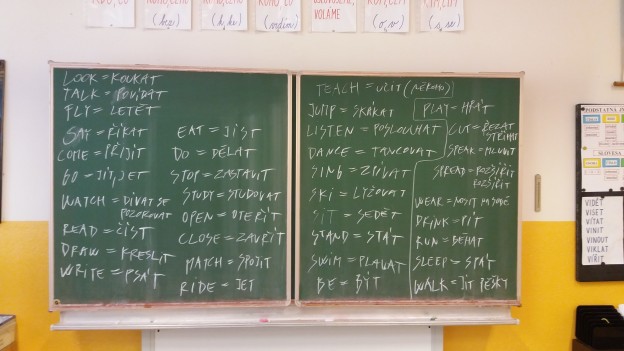 KOHO, CO
(bez)
(k, ke)
KOHO, CO
(vidím)
OSLOVUJEME,
VOLÁME
KOM, ČEM
(o, v)
KÝM, ČÍM
(s, se)
LOOK = KOUKAT
TALK = POVÍDAT
FLY = LETĚT
SAY = ŘÍKAT
COME = PŘIJÍT
GO = JÍT, JET
WATCH = DÍVAT SE
POZOROVAT
READ = ČÍST
DRAW = KRESLIT
WRITE = PSÁT
EAT = JÍST
DO = DĚLAT
STOP = ZASTAVIT
STUDY = STUDOVAT
OPEN = OTEŘÍT
CLOSE = ZAVŘÍT
MATCH = SPOJIT
RIDE = JET
TEACH = UČIT (NĚKOHO)
JUMP = SKÁKAT
LISTEN = POSLOUCHAT
DANCE = TANCOVAT
SING = ZPÍVAT
SKI = LYŽOVAT
SIT = SEDĚT
STAND = STÁT
SWIM = PLAVAT
BE = BÝT
PLAY = HRÁT
CUT = ŘEZAT
STŘÍHAT
SPEAK = MLUVIT
SPREAD = ROZŠÍŘIT
ROZŠÍŘIT
WEAR = NOSIT NA SOBĚ
DRINK = PÍT
RUN = BĚHAT
SLEEP = SPÁT
WALK = JÍT PĚŠKY
PODSTATNÁ
SLOVESA
VIDĚT
VISET
VÍTAT
VINIT
VINOUT
VIKLAT
VÍŘIT